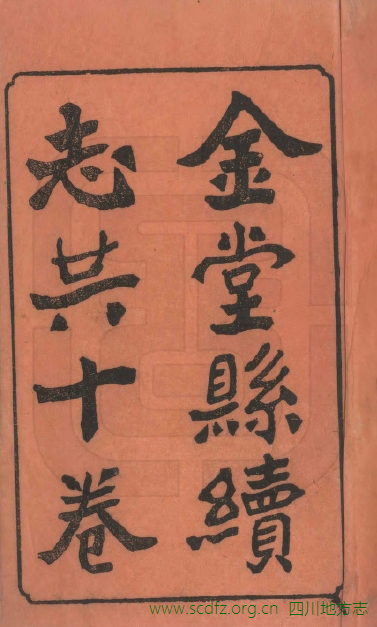 金堂縣續
志共十卷
www.scdfz.org.cn 四川地方志